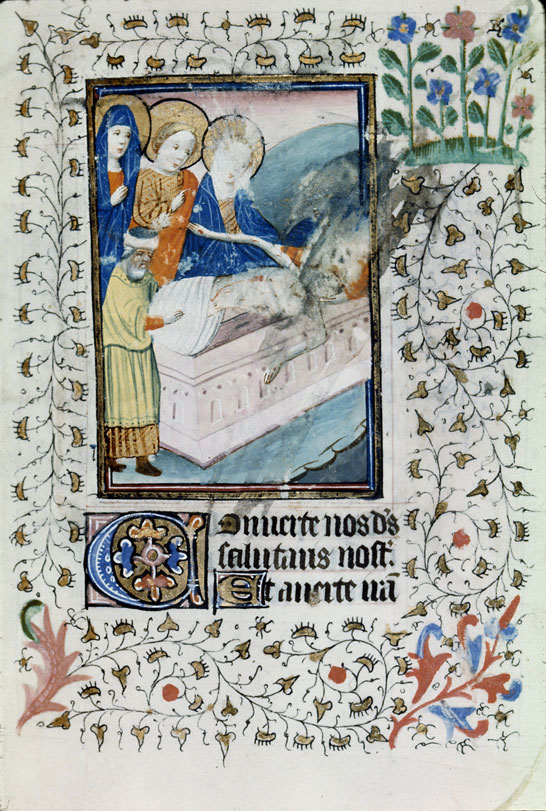 Conuerte nos ds̄
salutaris nostr:
Et auerte irā